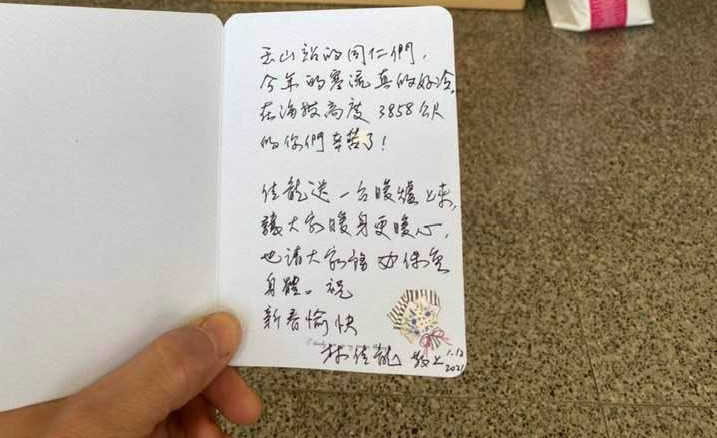 玉山站的同仁們,
今年的寒流真的好冷。
在海拔高度3858公尺
的你們辛苦了!
佳龍送一台暖爐上來,
讓大家暖身更暖心,
也請大家務必保重
身體。祝
新春愉快
林佳龍 敬上 1.12
2021